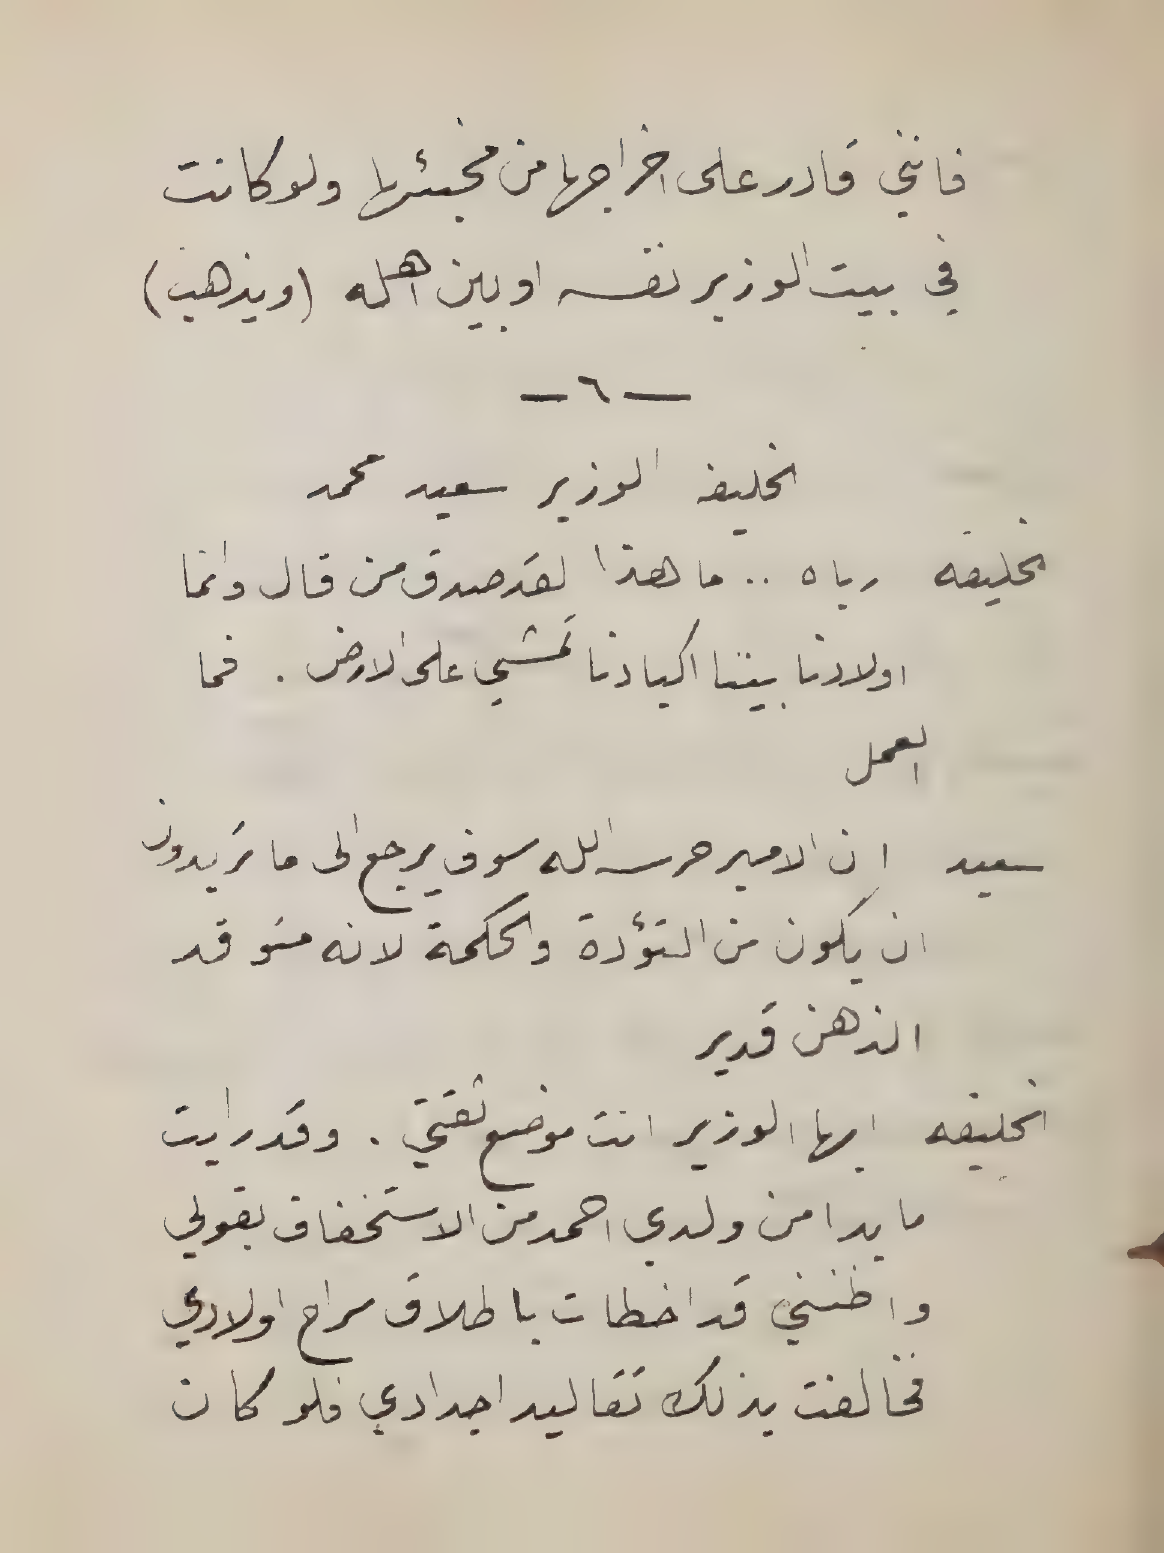 فانني قادر على اخراجها من مخبئها ولو كانت
في بيت الوزير نفسه او بين اهله (ويذهب)
— ٦ —
الخليفه الوزير سعيد محمد
الخليفه رباه .. ما هذا لقد صدق من قال وانما
اولادنا بيننا اكبادنا تمشي على الارض . فما
العمل
سعيد ان الامير حرسه الله سوف يرجع الى ما تريدون
ان يكون من التؤدة والحكمة لانه متوقد
الذهن قدير
الخليفه ايها الوزير انت موضع ثقتي . وقد رايت
ما بدا من ولدي احمد من الاستخفاف بقولي
واظنني قد اخطات باطلاق سراح اولادي
فخالفت بذلك تقاليد اجدادي فلو كان